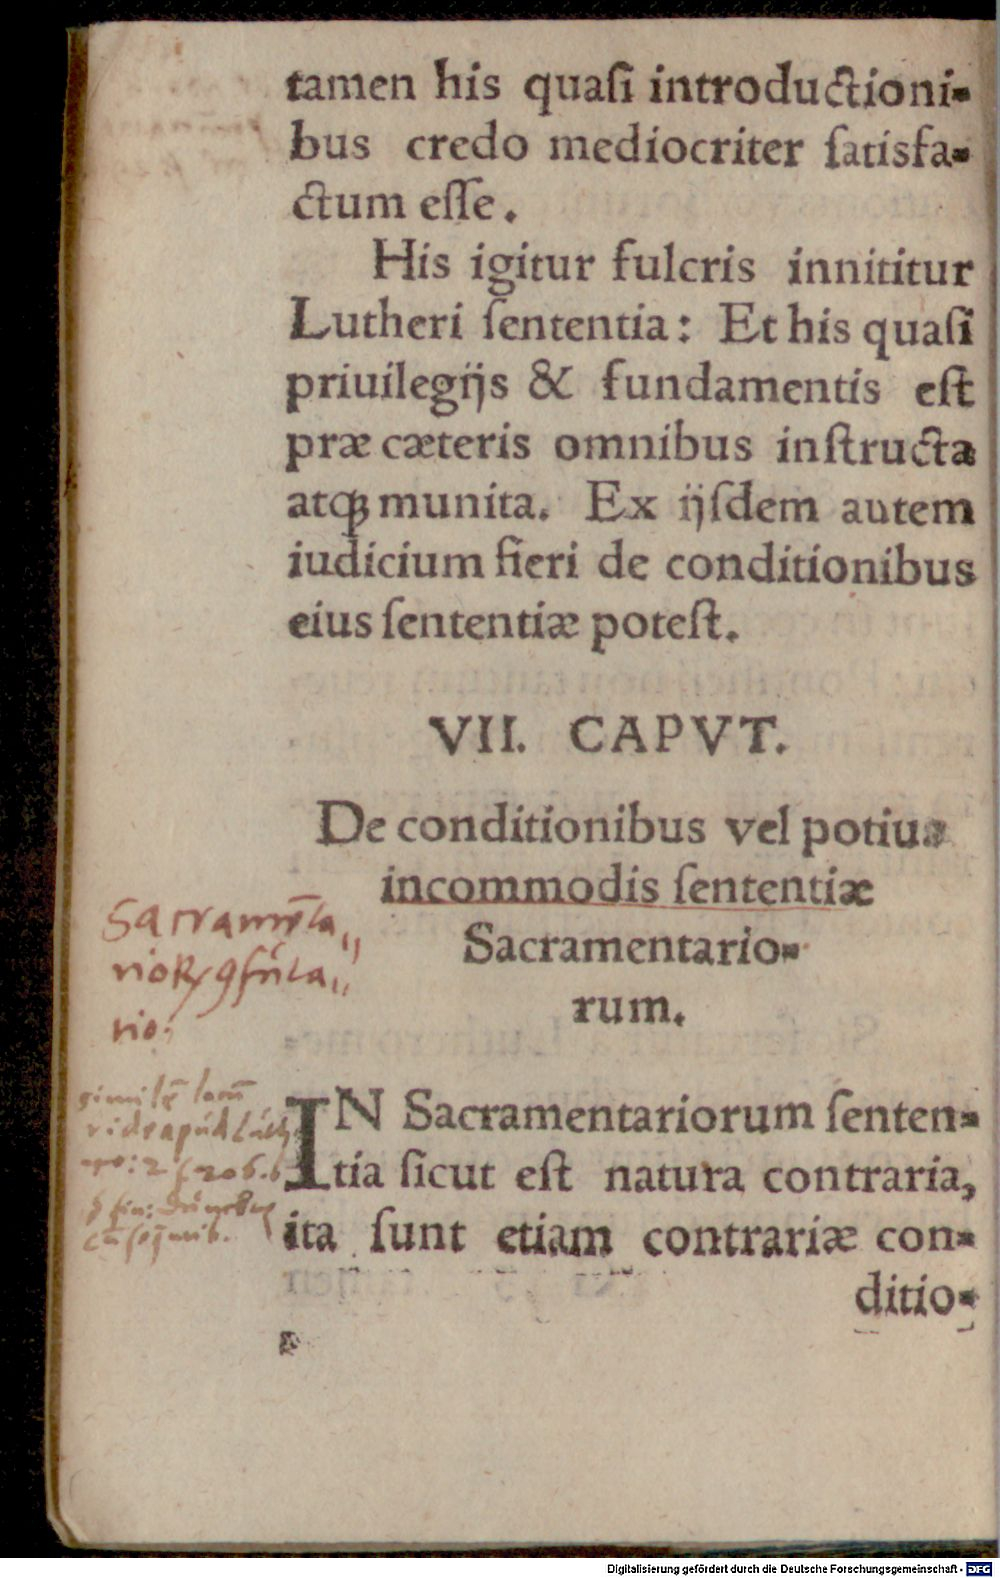 tamen his quaſi introductioni-
bus credo mediocriter ſatisfa-
ctum eſſe.
His igitur fulcris innititur
Lutheri ſententia: Et his quaſi
priuilegijs & fundamentis eſt
præ cæteris omnibus inſtructa
atq; munita. Ex ijſdem autem
iudicium fieri de conditionibus
eius ſententiæ poteſt.
VII. CAPVT.
De conditionibus vel potius
incommodis ſententiæ
Sacramentario-
rum.
Sacramēta
rioꝝ
rio:
similē locū
vide apud Luth
206.
IN Sacramentariorum ſenten-
tia ſicut eſt natura contraria,
ita ſunt etiam contrariæ con-
ditio-
Digitalisierung gefördert durch die Deutsche Forschungsgemeinschaft - DFG